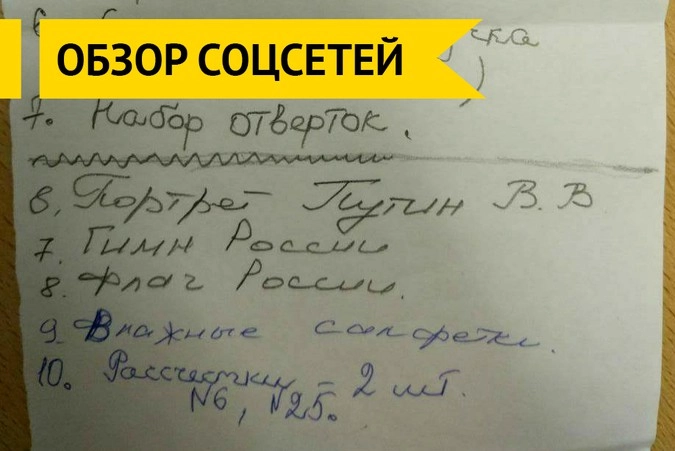 ОБЗОР СОЦСЕТЕЙ
7. Набор отверток.
6. Портрет Путин В.В
7. Гимн России
8. Флаг России.
9. Влажные салфетки.
10. Рассчестки - 2 шт.
N6, N25.